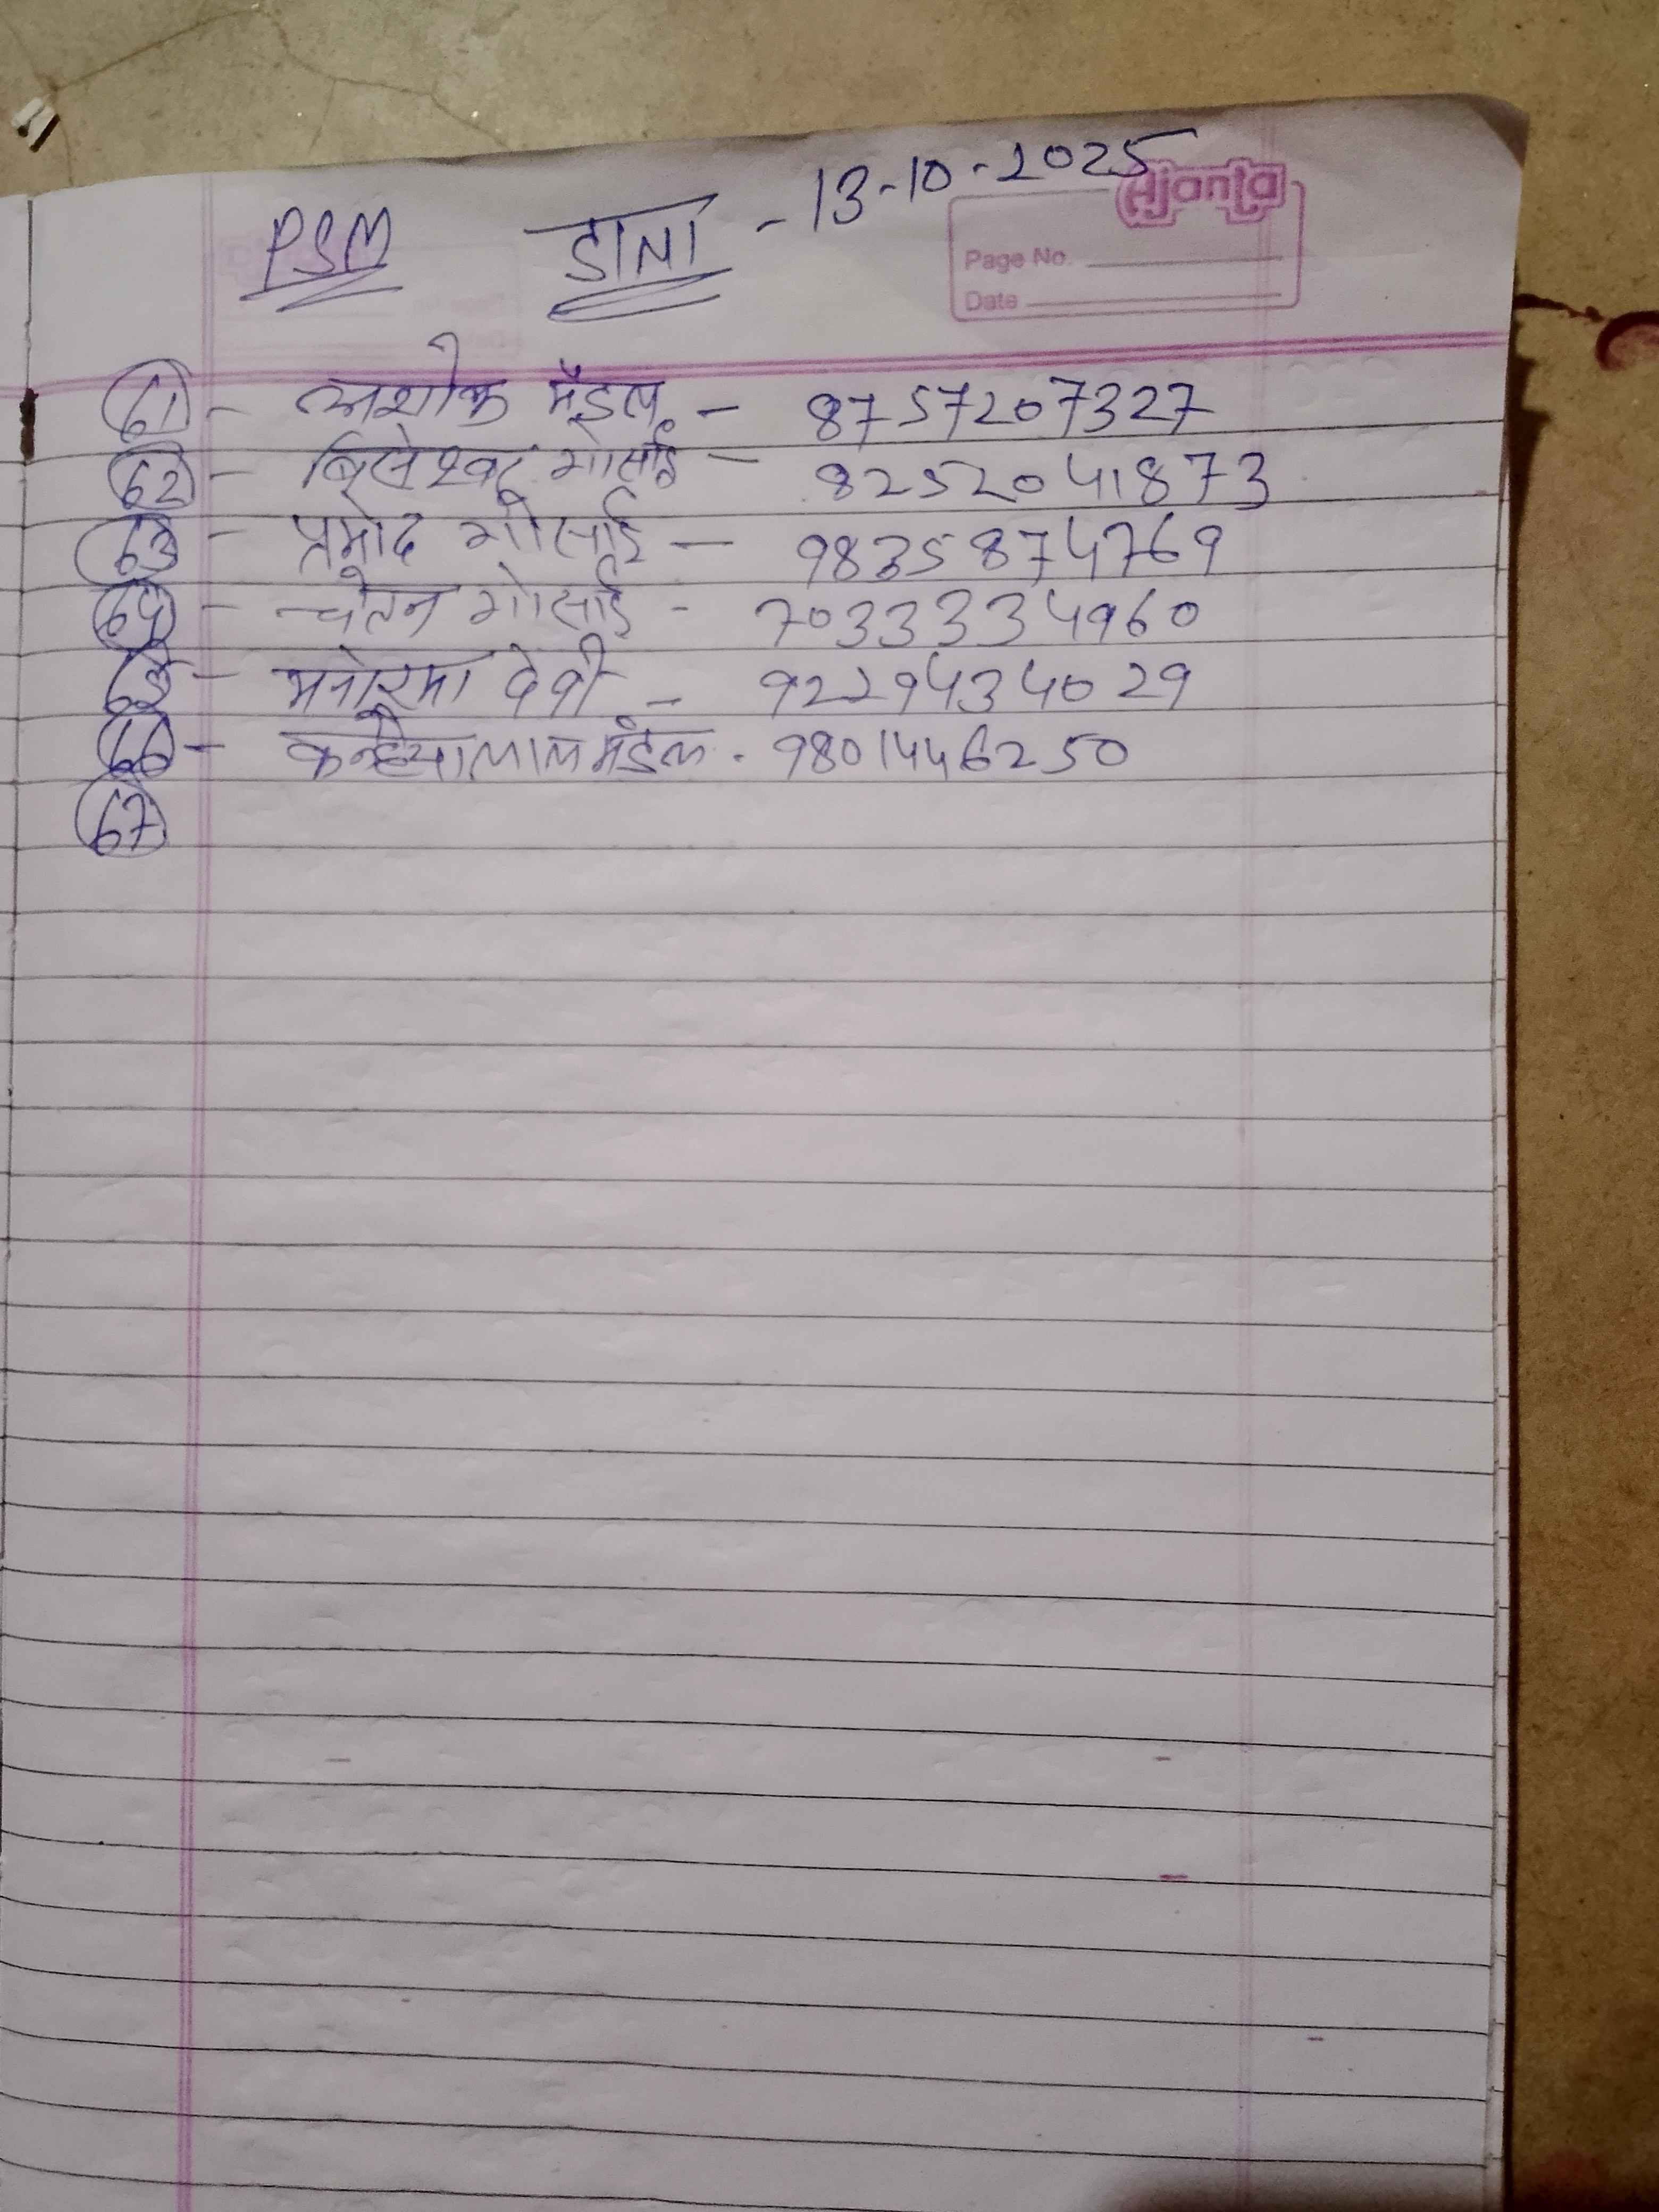 PSM डाना - 13-10-2025
Ajanta
Page No.
Date
61 - अशोक मंडल - 8757207327
62 - बिसेश्वर गोसाईं - 8252041873
63 - प्रमोद गोसाईं - 9835874769
64 - चेतन गोसाईं - 7033334960
65 - मनोरमा देवी - 9229434029
66 - कन्हैयालाल मंडल - 9801446250
67